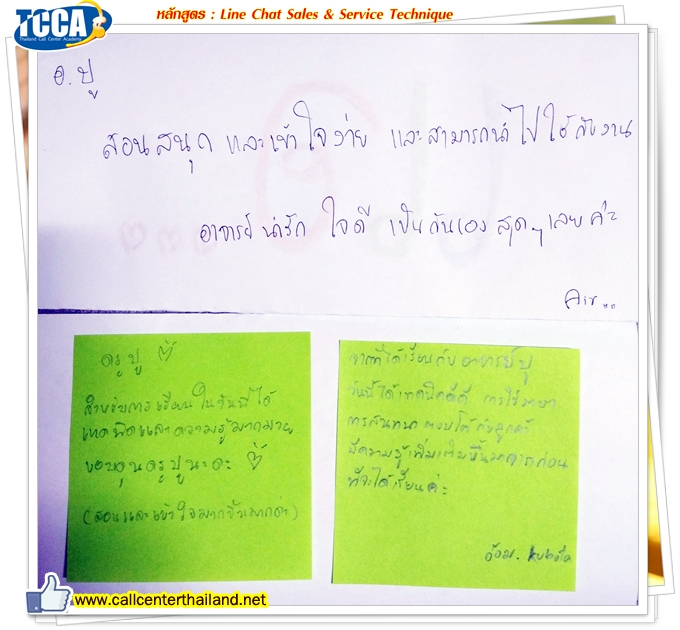 TCCA
Thailand Call Center Academy
หลักสูตร : Line Chat Sales & Service Technique
อ.ปู
สอนสนุก และเข้าใจง่าย และสามารถนำไปใช้กับงาน
อาจารย์น่ารัก ใจดี เป็นกันเอง สุดๆ เลยค่ะ
Air...
ครูปู
สำหรับการเรียนในวันนี้ได้
เทคนิคและความรู้มากมาย
ขอบคุณครูปูนะคะ
(สอนและเข้าใจมากขึ้นมากค่ะ)
จากที่ได้เรียนกับอาจารย์ปู
วันนี้ได้เทคนิคดีดี การใช้ภาษา
การสนทนา ตอบโต้กับลูกค้า
มีความรู้เพิ่มเติมขึ้นมาจากก่อน
ที่จะได้เรียนค่ะ
kubota
www.callcenterthailand.net